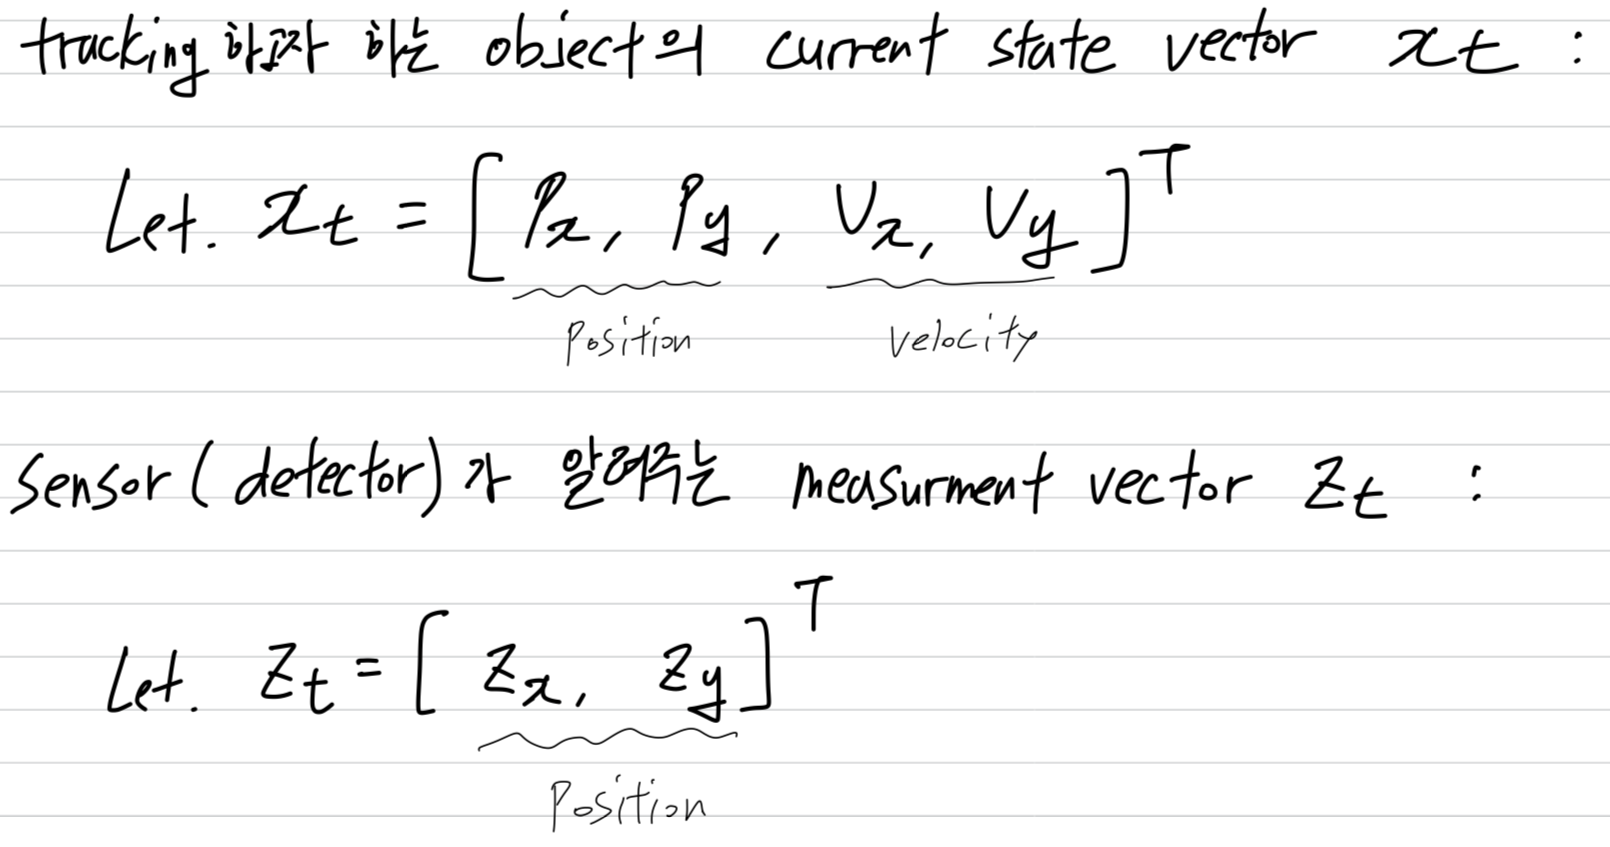 tracking 하고자 하는 object의 current state vector xt :
Let. xt = [Px, Py, Vx, Vy]^T
Position velocity
Sensor(detector)가 알려주는 measurment vector Zt :
Let. Zt = [Zx, Zy]^T
Position